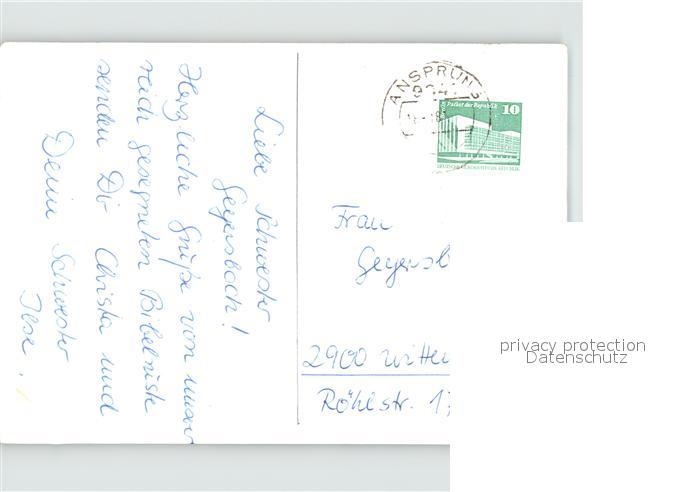 Liebe Schwester
Gegersbach!
Herzliche Grüße von unser
reich gesegneten Bibelrüste
senden Dir Christa und
Deine Schwester
Ilse.
ANSPRUNG
934
Palast der Republik 10
DEUTSCHE DEMOKRATISCHE REPUBLIK
Frau
2900 Witte
Röhlstr. 17
privacy protection
Datenschutz